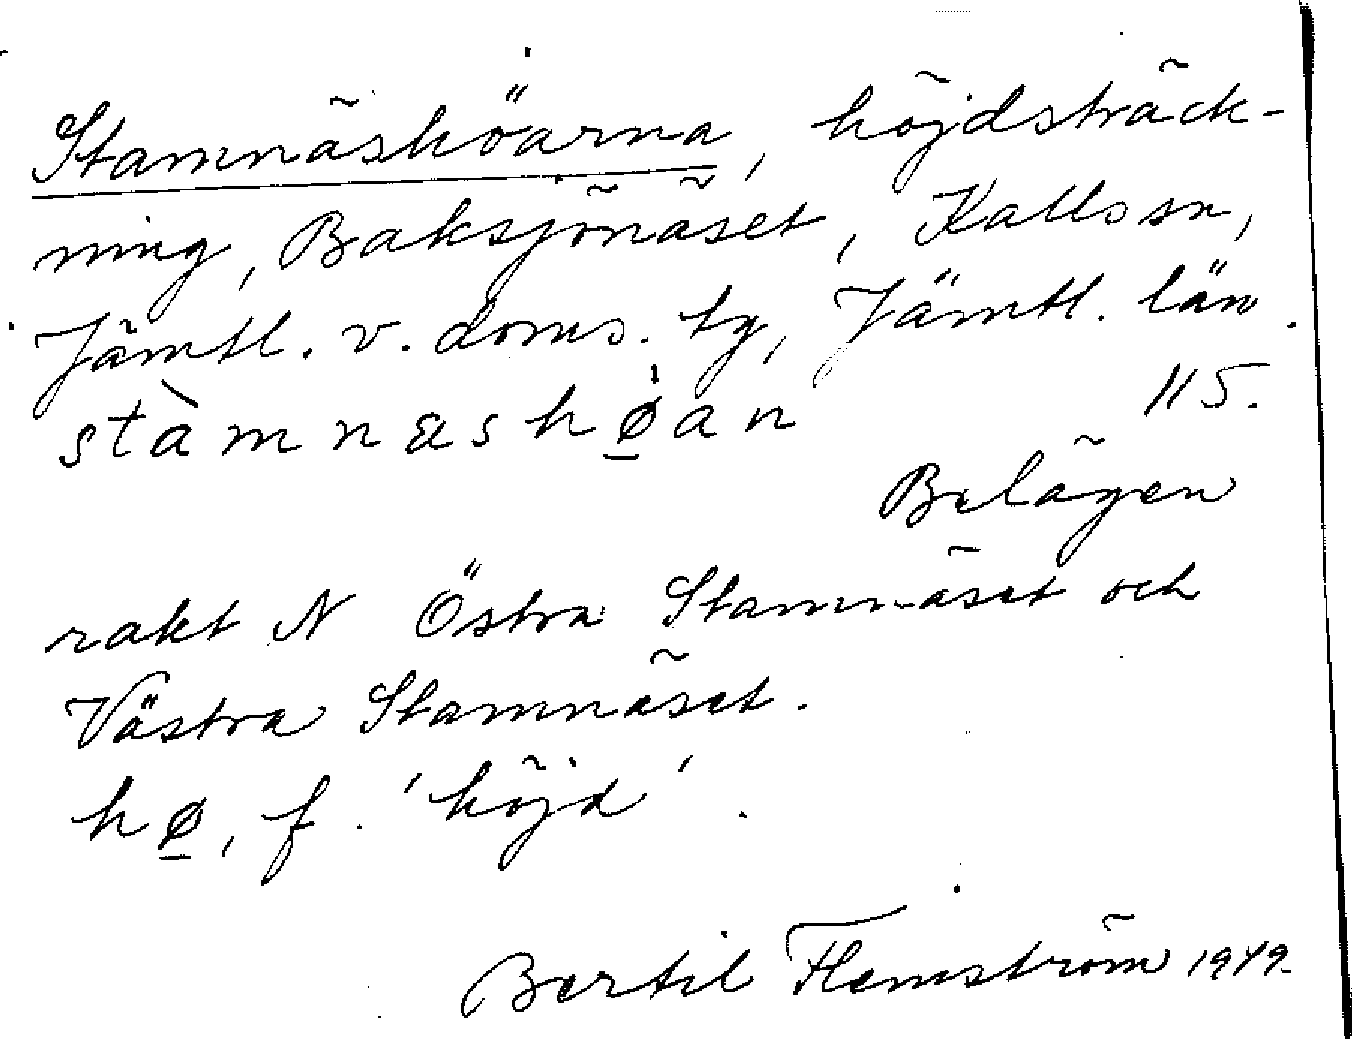 Stamnäshöarna, höjdsträck-
ning, Baksjönäset, Kalls sn,
Jämtl. v. doms. tg, Jämtl. län.
stàmnæshø̱an 115.
Belägen
rakt N Östra Stamnäset och
Västra Stamnäset.
hø̱, f. 'höjd'.
Bertil Flemström 1949.